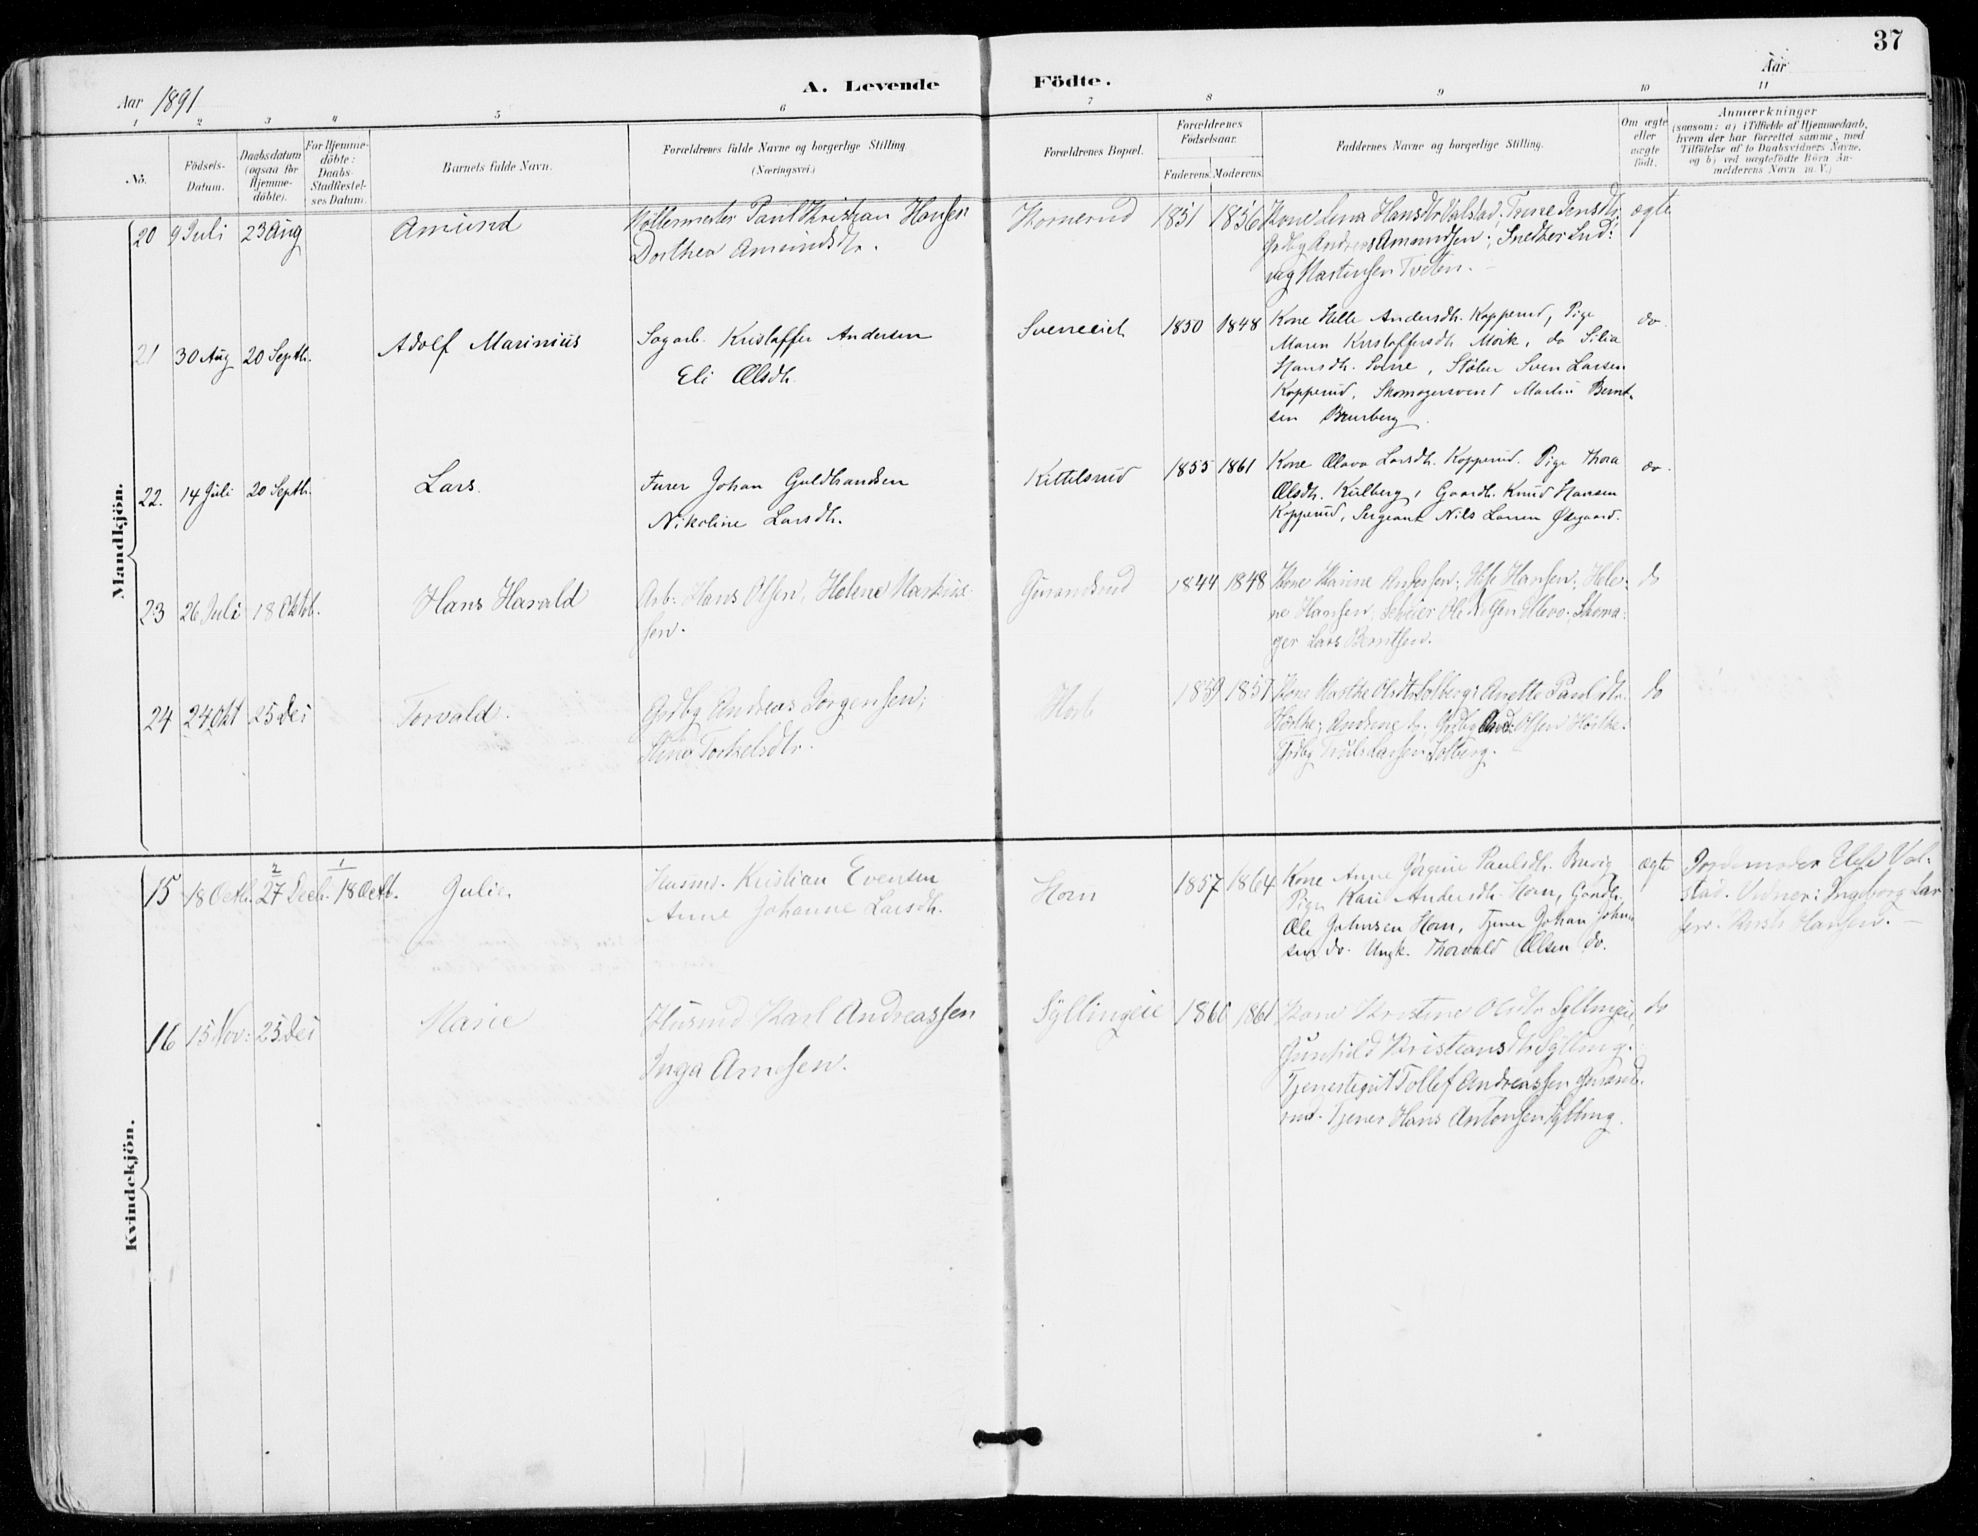 37
Aar 1891
A. Levende Födte.
Aar
1 2 3 4 5 6 7 8 9 10 11
No.
Födsels-Datum.
Daabsdatum (ogsaa for Hjemme-döbte).
For Hjemme-döbte: Daabs-Stadfæstel-ses Datum.
Barnets fulde Navn.
Forældrenes fulde Navne og borgerlige Stilling (Næringsvei.)
Forældrenes Bopæl.
Forældrenes Födselsaar.
Faderens. Moderens.
Faddernes Navne og borgerlige Stilling.
Om ægte eller uægte födt.
Anmærkninger
(saasom: a) i Tilfælde af Hjemmedaab, hvem der har forrettet samme, med Tilföielse af to Daabsvidners Navne, og b) ved uægtefödte Börn Anmelderens Navn m. V.)
Mandkjön.
20 9 Juli 23 Aug Amund
Møllermester Paul Kristian Hansen
Dorthea Amundsdtr.
Kornerud 1851 1856
Kone Lina Hansdtr Valstad; Trine Jensdtr;
Grdbg Andreas Amundsen; Snedker Lud-
vig Martinsen Tveten.
ægte
21 30 Aug 20 Septb. Adolf Marinius
Sagarb. Kristoffer Andersen
Eli Olsdtr.
1850 1848
Kone Helle Andersdtr. Kopperud, Pige
Maren Kristoffersdtr. Mørk, do Silia
Hansdtr. , Sven Larsen
Kopperud, Skomagersvend Martin Bernt-
sen
do.
22. 14 Juli 20 Septb. Lars.
Johan Guldbrandsen
Nikoline Larsdtr.
Kittelsrud 1855 1861
Kone Olava Larsdtr. Kopperud. Pige Thora
Olsdtr. Kulberg, Gaardbr. Knud Hansen
Kopperud, Sergeant Nils Larsen Ødegaard.
do.
23 26 Juli 18 Oktb. Hans Harald
Arb: Hans Olsen, Helene Markus-
sen.
Gurandsrud 1844 1848
Kone Karine Andersen; Else Hansen; Hele-
ne Hansen, Ole Olsen ; Skoma-
ger Lars Berntsen.
do
24 24 Okt 25 Dei Torvald.
Grdbg Andreas Jørgensen;
Torkelsdtr.
1859 1857
Kone Marthe Olsdtr Solberg; Anette Paulsdtr.
Hørthe; Andrine ; Grdbg And: Olsen Hørthe.
Grdbg Truls Larsen Solberg.
do
Kvindekjön.
15 18 Octb. 2/27 Decb. 1/18 Octb. Julie.
Husmd. Kristian Evensen
Anne Johanne Larsdtr.
Horn 1857 1864
Kone Anne Jørgine Paulsdtr.
Pige Kari Andersdtr. Horn, Gaardbr.
Ole Johnsen Horn, Tjener Johan Johan-
sen do. Ungk. Thorvald Olsen do.
ægte
Jordemoder Else Val-
stad. Vidner: Ingeborg Lar-
sen. Hansen. —
16 15 Nov: 25 Dei Marie
Husmd Karl Andreassen
Inga Arnesen.
Syllingeie 1860 1861
Kone Kristine Olsdtr Syllingeie,
Gunhild Kristiansdtr Sylling.
Tjenestegut Tollef Andreassen Gurands-
rud. Tjener Hans Antonsen Sylling.
do